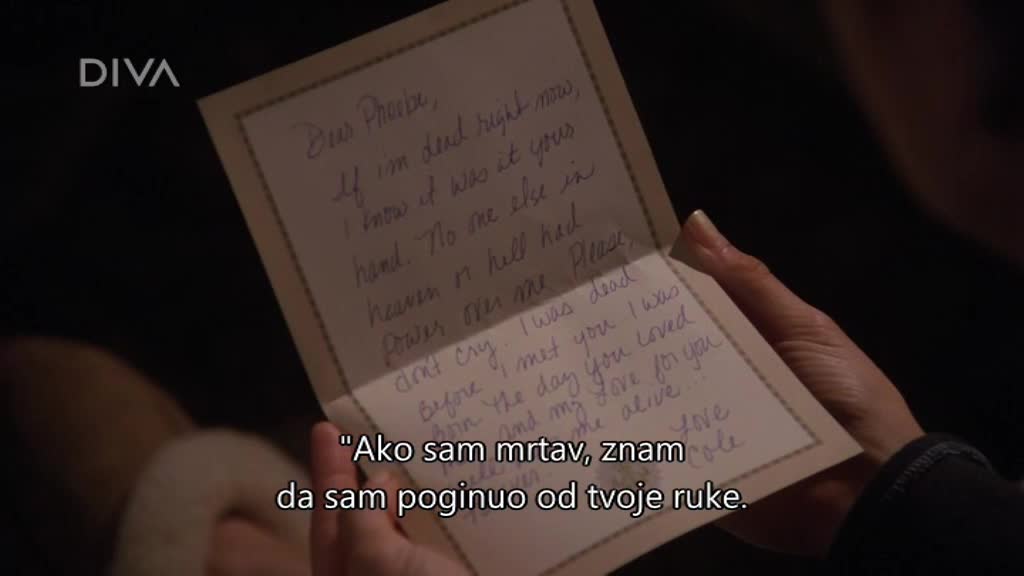 DIVA
Dear Phoebe,
If im dead right now,
I know it was it yours
hand. No one else in
heaven or hell had
power over me. Please,
don't cry. I was dead
before I met you I was
born the day you loved
and my love for you
me alive...
Love
Cole
"Ako sam mrtav, znam
da sam poginuo od tvoje ruke.